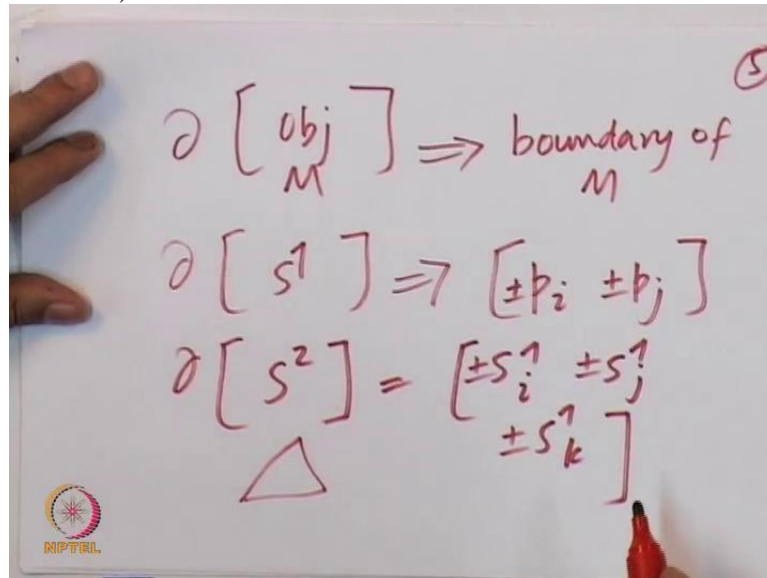 5
∂ [ obj M ] ⇒ boundary of M
∂ [ S¹ ] ⇒ [ ±pᵢ ±pⱼ ]
∂ [ S² ] = [ ±S¹ᵢ ±S¹ⱼ
±S¹ₖ ]
NPTEL